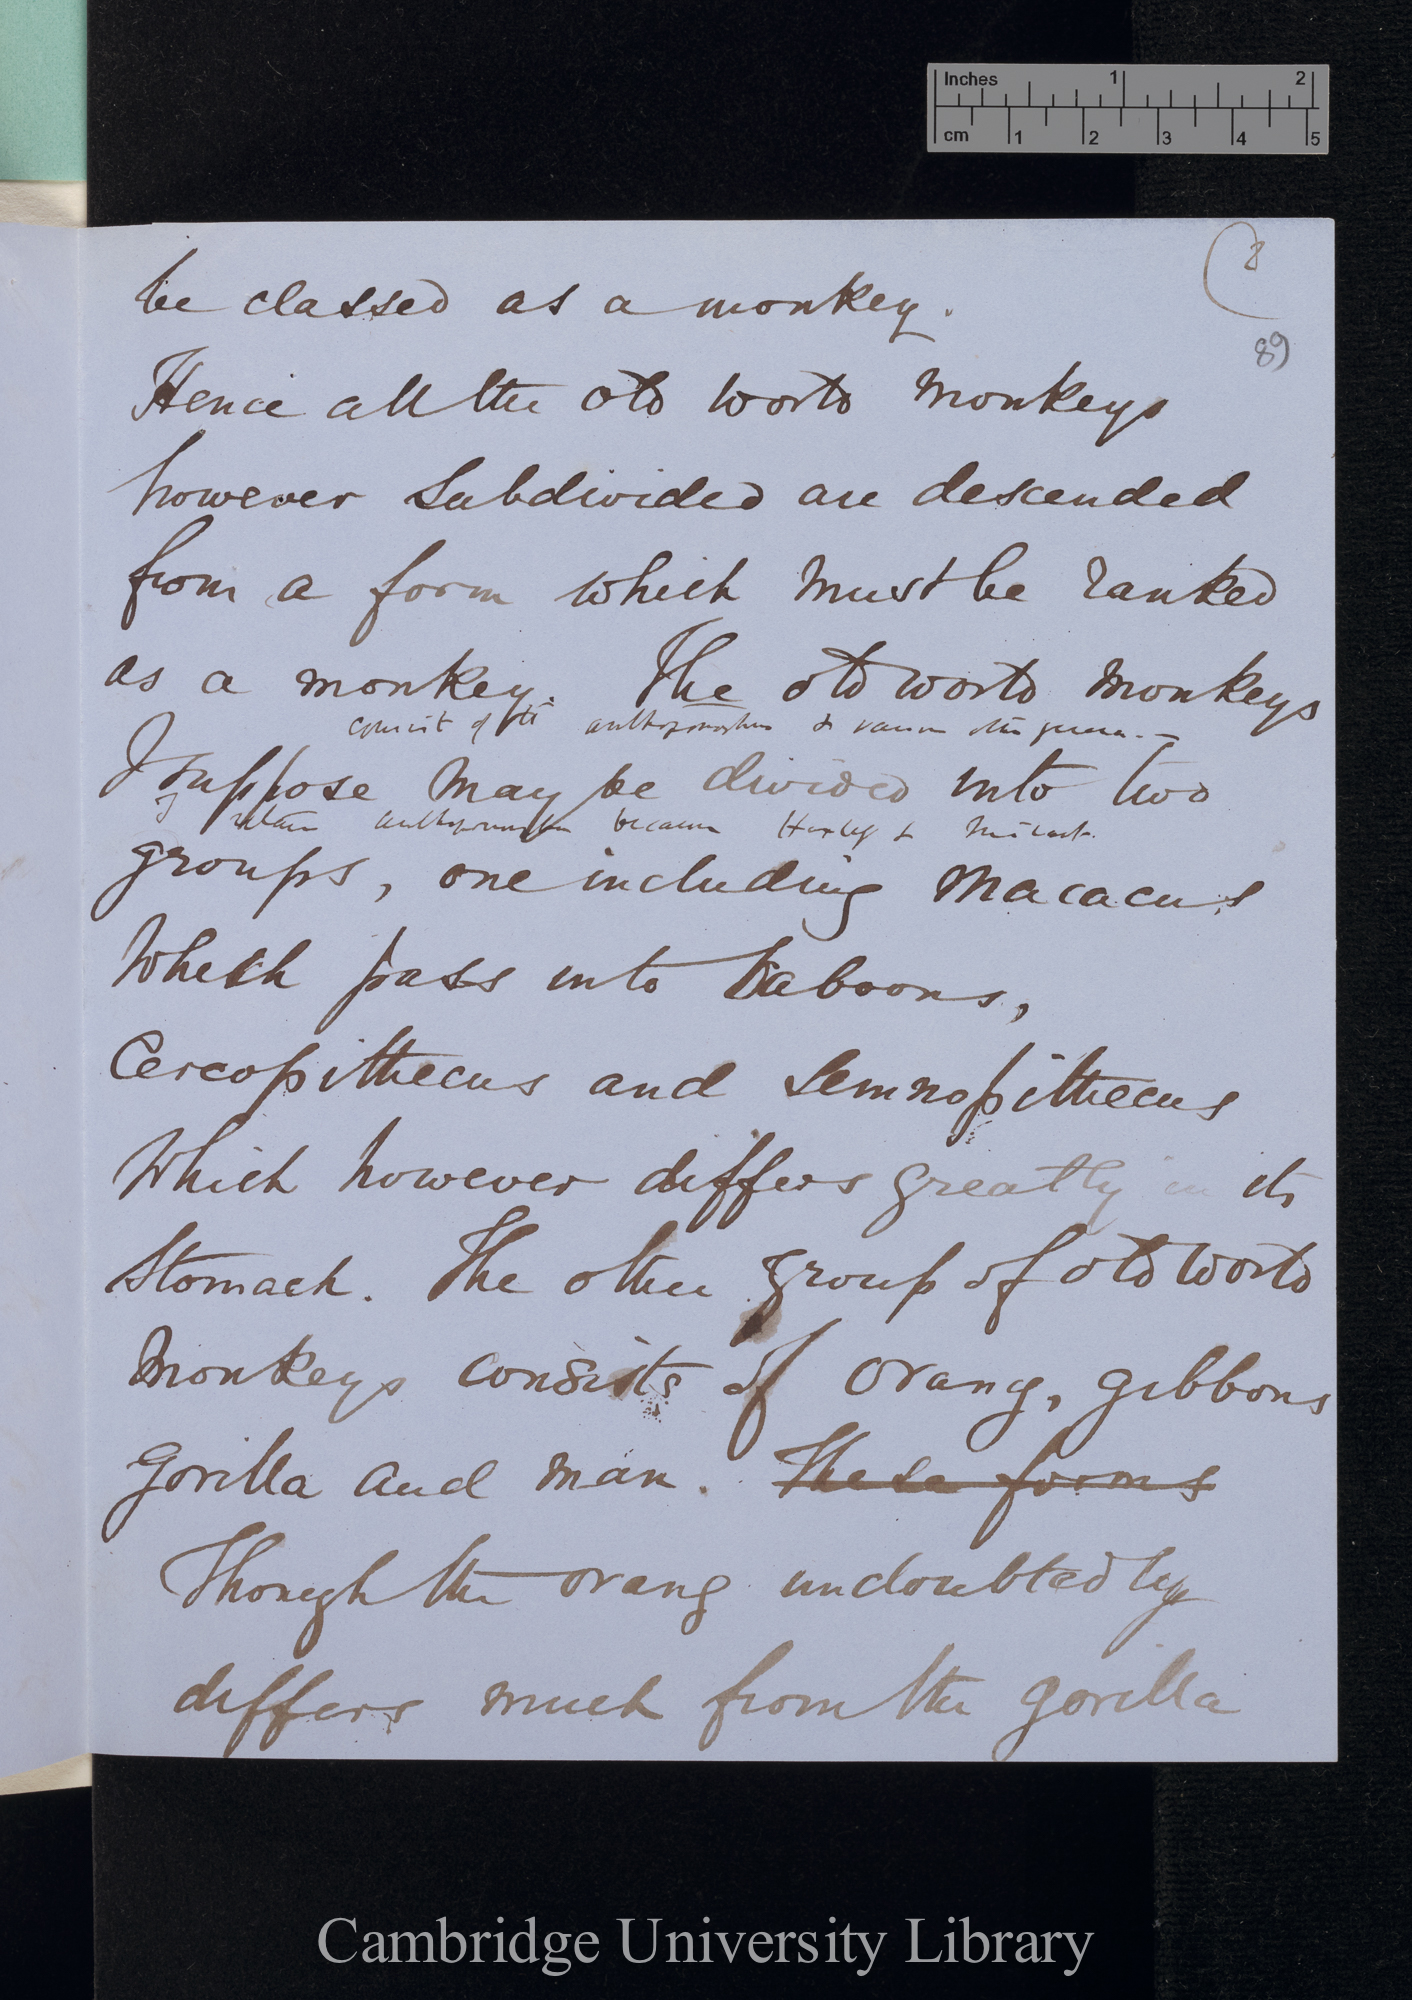 Inches 1 2
cm 1 2 3 4 5
(8
89
be classed as a monkey.
Hence all the old world monkeys
however subdivided are descended
from a form which must be ranked
as a monkey. The old world monkeys
consist of the anthropomorphus & various other genera.—
I suppose may be divided into two
I retain anthropomorphus because Huxley &
groups, one including Macacus
which pass into baboons,
Cercopithecus and Semnopithecus
which however differs greatly in its
stomach. The other group of old world
monkeys consists of orang, gibbons
gorilla and man. These forms
Though the orang undoubtedly
differs much from the gorilla
Cambridge University Library